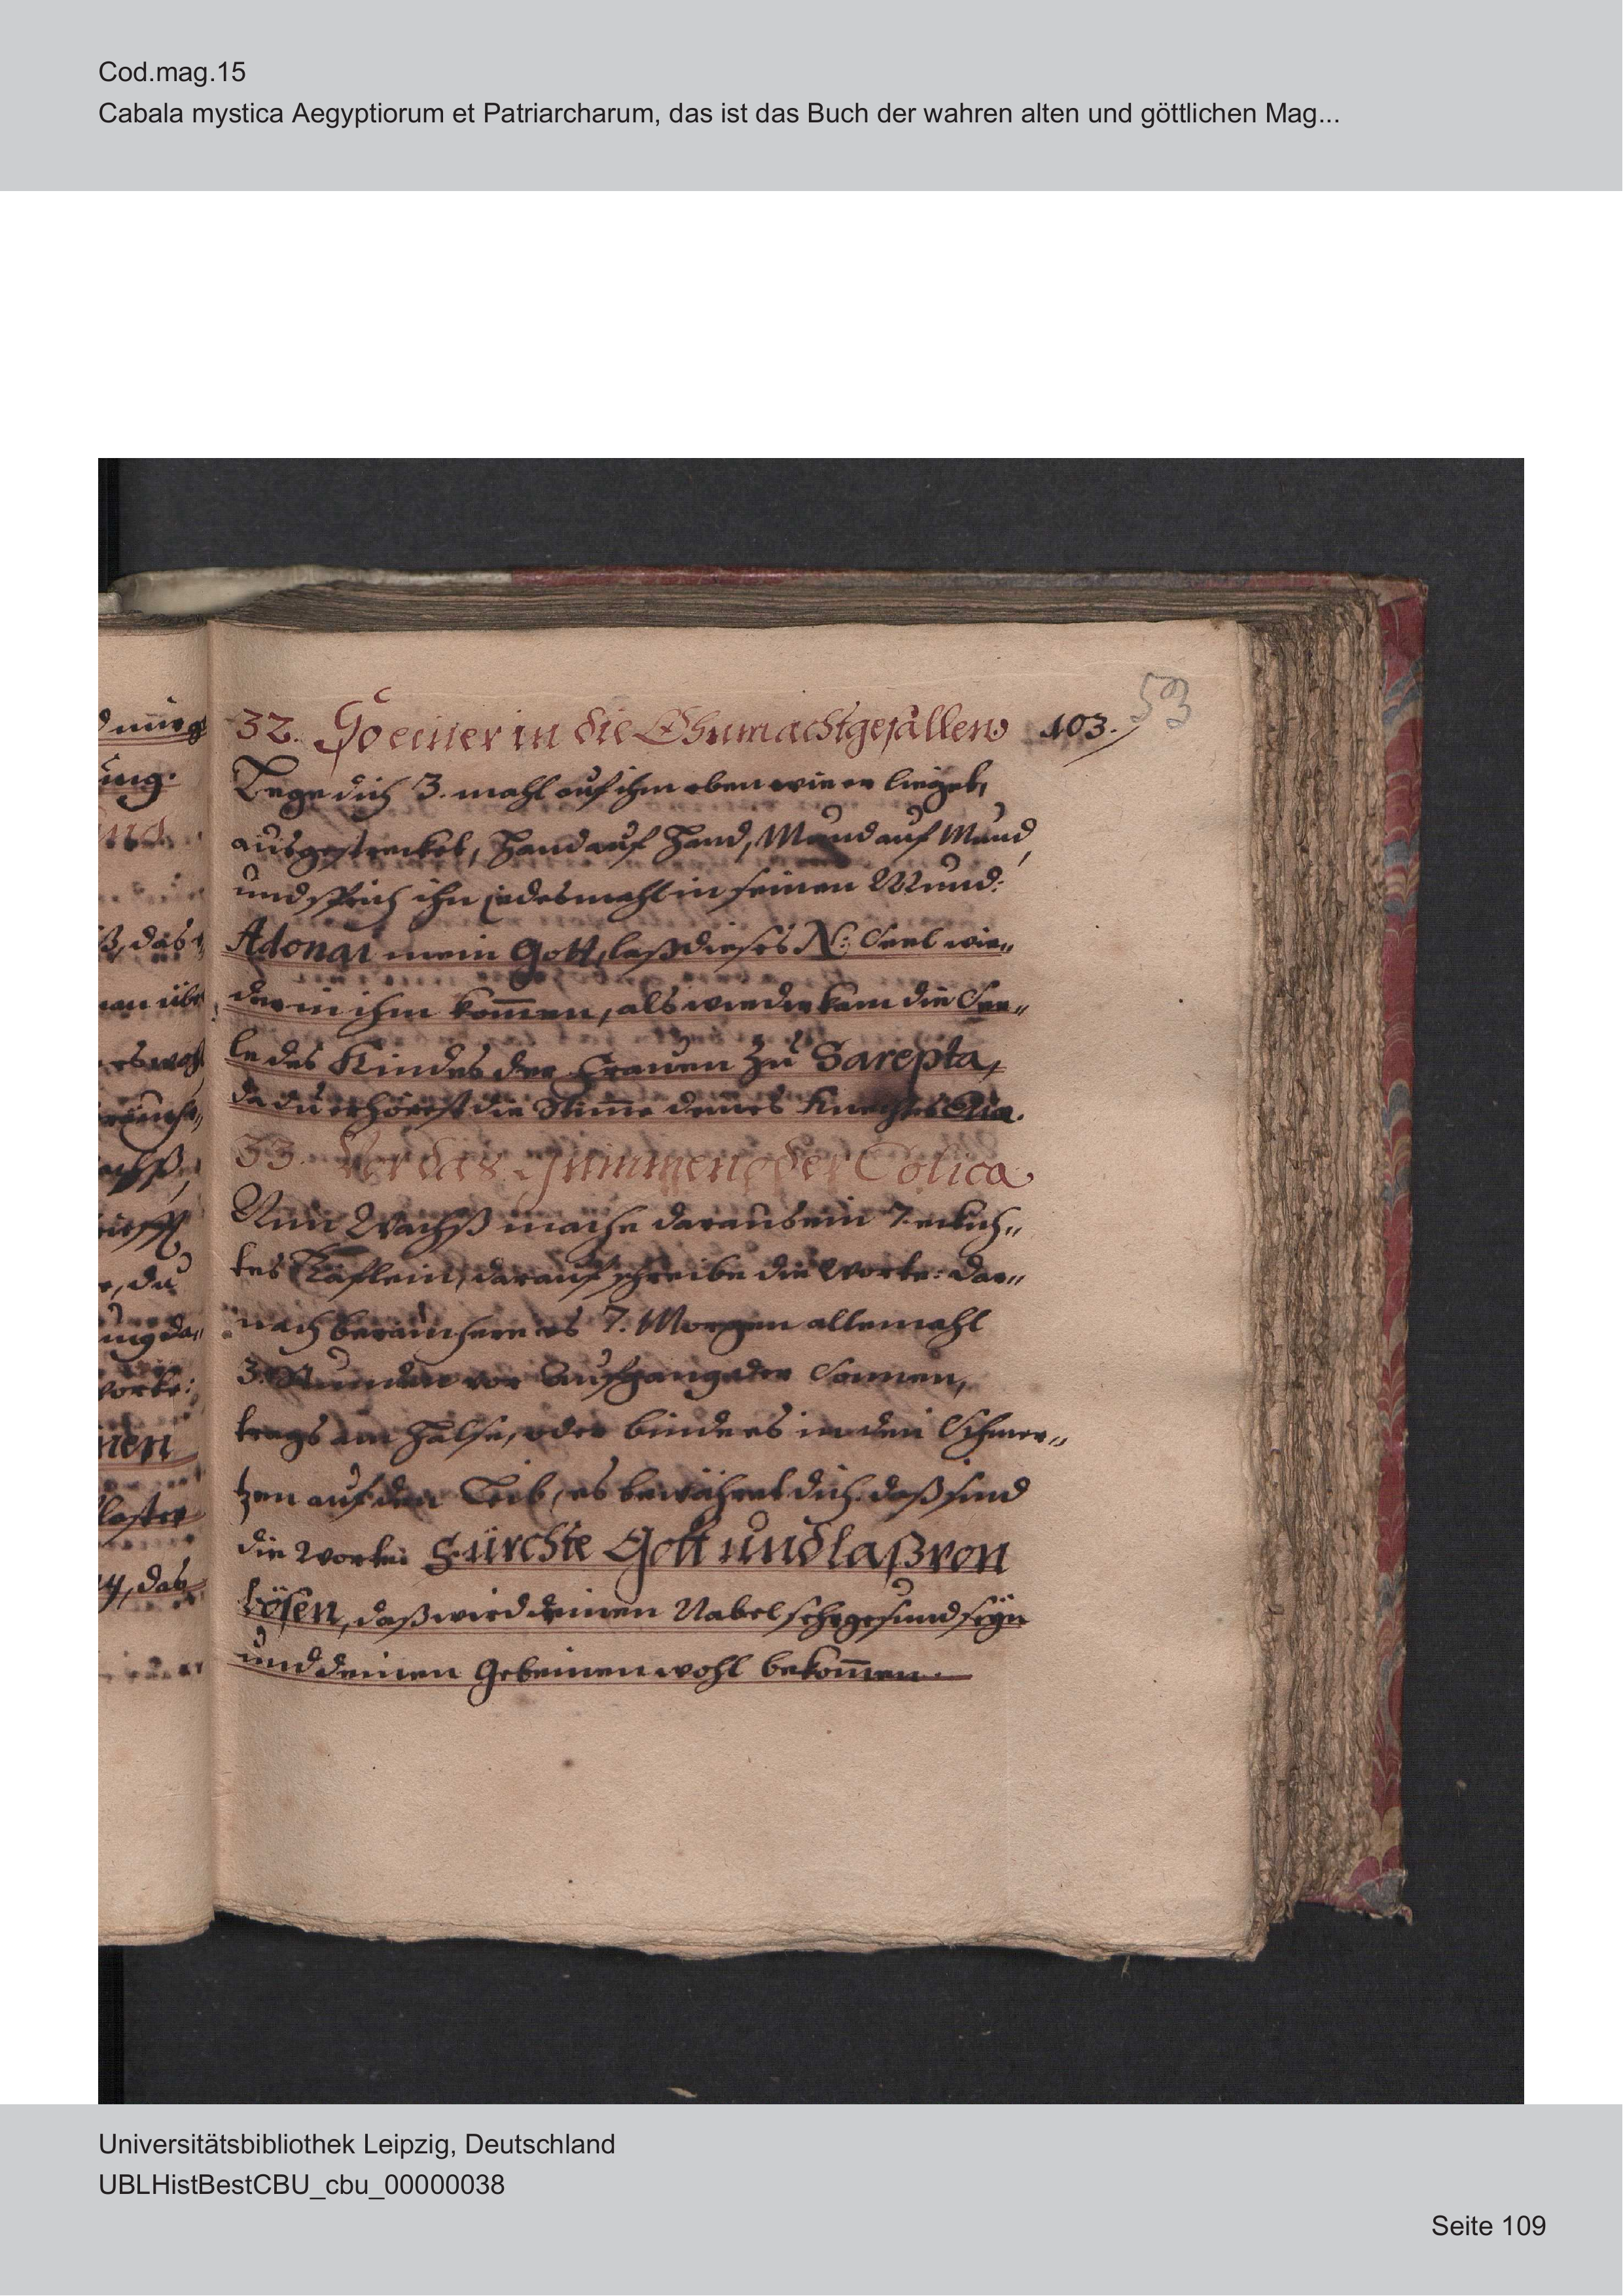 Cod.mag.15
Cabala mystica Aegyptiorum et Patriarcharum, das ist das Buch der wahren alten und göttlichen Mag...
53
32. So einer in die Ohnmacht gefallen 103.
Lege dich 3. mahl auf ihm eben wie er lieget,
ausgestrecket, Hand auf Hand, Mund auf Mund,
und sprich ihn jedesmahl in seinen Mund:
Adonai mein Gott, laß dieses N: Seel wie„
der in ihm kom̄en, als wieder kam die See„
le des Kindes der Frauen zu Sarepta,
da du erhörest die Stim̄e deines Knechtes Elia.
33. Vor das Grimmen oder Colica
Nim Wachß mache daraus ein 7. eckich„
tes Täflein, darauf schreibe die Worte: dar„
nach beräuchere es 7. Morgen allemahl
3. Stunden vor Aufgang der Sonnen,
trags am Halse, oder binde es in den Schmer„
tzen auf den Leib, es bewähret dich. daß sind
die Worte: Fürchte Gott und laß von
bösen, daß wird deinen Nabel sehr gesund seÿn
und deinen Gebeinen wohl bekom̄en.
Universitätsbibliothek Leipzig, Deutschland
UBLHistBestCBU_cbu_00000038
Seite 109